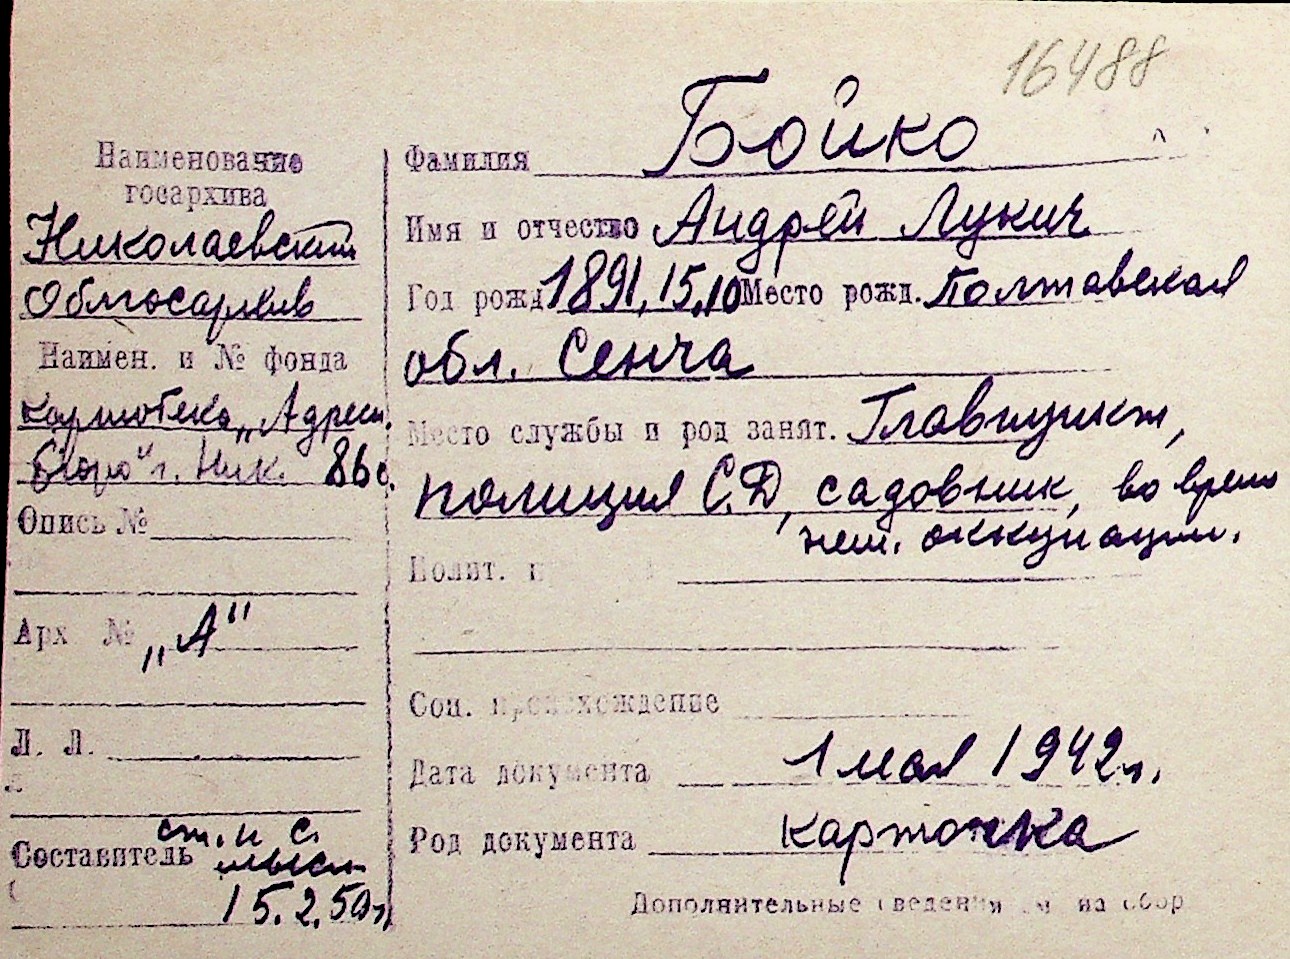 16488
Наименование
госархива
Николаевский
Облгосархив
Наимен. и № фонда
картотека „Адресн.
бюро" г. Ник. 86с.
Опись №
Арх № „А"
Л. Л.
Составитель ст. н. с.
15.2.50г.
Фамилия Бойко
Имя и отчество Андрей Лукич
Год рожд 1891, 15, 10 Место рожд. Полтавская
обл. Сенча
Место службы и род занят. Главпункт,
полиция С.Д, садовник, во время
нем. оккупации.
Полит.
Соц. происхождение
Дата документа 1 мая 1942г.
Род документа картонка
Дополнительные сведения на обор